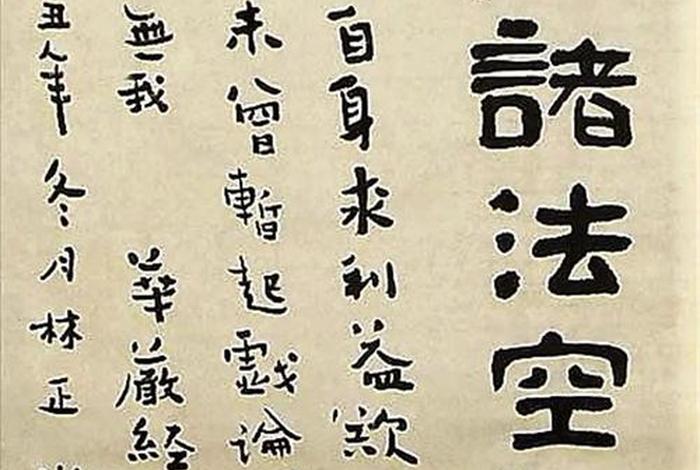 諸法空
自身求利益欲
未曾暫起戲論
無我 華嚴経
丑年冬月林正